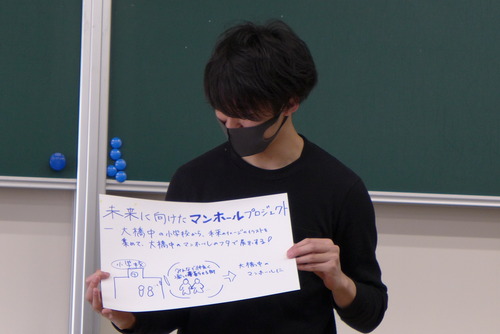 未来に向けたマンホールプロジェクト
大橋中の小学校から、未来のイメージのイラストを
集めて、大橋中のマンホールのフタで展示する!
小学校
みんなで
大橋中の
マンホールに